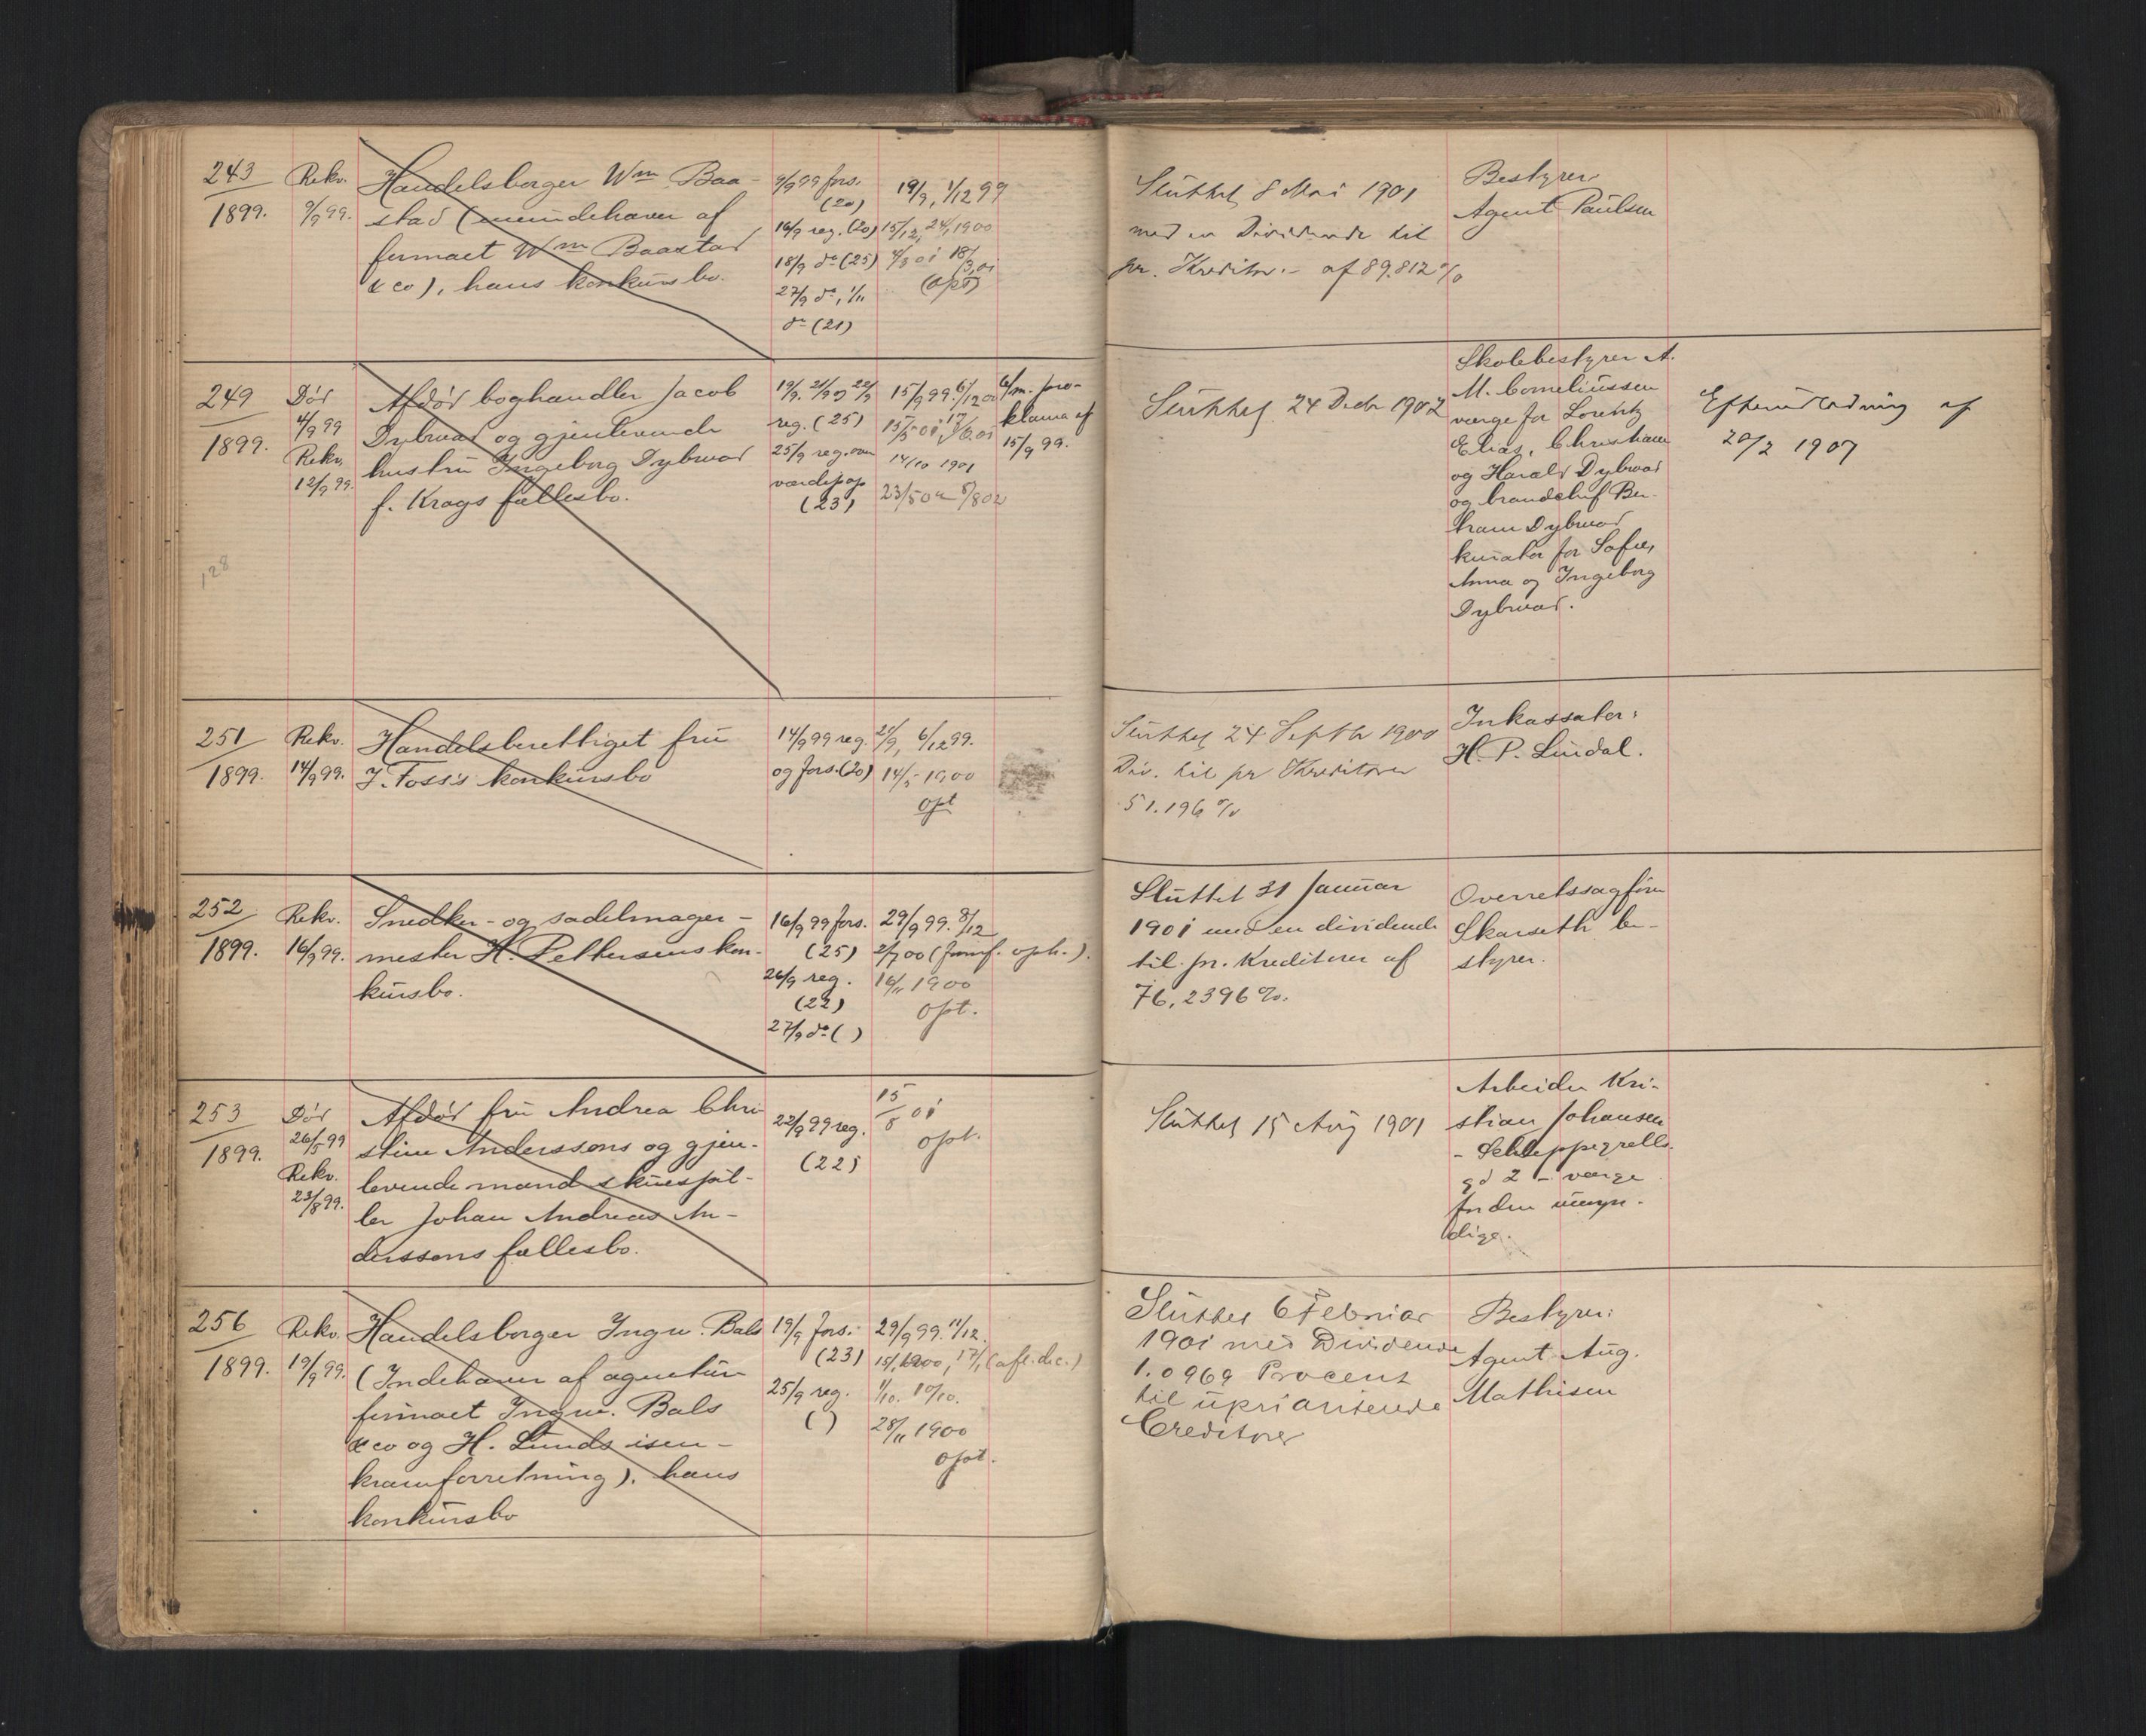 243
1899.
Rekv.
9/9 99.
Handelsborger Wm Baa-
stad (meindehaver af
firmaet Wm Baastad
& co), hans konkursbo.
9/9 99 fors.
(20)
16/9 reg. (20)
18/9 do (25)
27/9 do, 1/11
do (21)
19/9, 1/12 99
15/12, 24/1 1900
18/3 01
(opt)
Sluttet 8 Mai 1901
med en Dividende til
pr. Kreditor. af 89.812 %
Bestyrer
Agent Paulsen
249
1899.
128
Død
4/9 99
Rekv.
12/9 99.
Afdød boghandler Jacob
Dybwad og gjenlevende
hustru Ingeborg Dybwad
f. Krags fællesbo.
19/9. 21/9 og 22/9
reg. (25)
25/9 reg. over
værdipap
(23)
15/9 99. 6/12 00
14/10 1901
23/5 02 8/8 02
6/m. pro-
klama af
15/9 99.
Sluttet 24 Decbr 1902
Skolebestyrer A.
M. Corneliussen
værge for Lorentz
Elias, Christiane
og Harald Dybwad
og brandchef Ber-
tram Dybwad
kurator for Sofie,
Anna og Ingeborg
Dybwad.
Efterudlodning af
20/2 1907
251
1899.
Rekv.
14/9 99.
Handelsberettiget fru
J. Foss's konkursbo
14/9 99 reg.
og fors. (20)
21/9, 6/12 99.
14/5 1900
opt
Sluttet 24 Septbr 1900
Div. til pr Kreditorer
51.196 %
Inkassator:
H. P. Lindal.
252
1899.
Rekv.
16/9 99.
Snedker- og sadelmager-
mester H. Pettersens kon-
kursbo.
16/9 99 fors.
(25)
26/9 reg.
(22)
27/9 do ( )
29/9 99. 8/12
2/7 00 (foref. opt.).
16/11 1900
opt.
Sluttet 31 Januar
1901 med en dividende
til pr. Kreditorer af
76,2396 %.
Overretssagfører
Skarseth be-
styrer.
253
1899.
Død
26/5 99
Rekv.
23/8 99.
Afdød fru Andrea Chri-
stine Anderssons og gjen-
levende mand skuespil-
ler Johan Andreas An-
derssons fællesbo.
22/9 99 reg.
(22)
15/8 01
opt.
Sluttet 15 Aug 1901
Arbeider Kri-
stian Johansen
- Schleppegrells
gd 2 - værge
for den umyn-
dige.
256
1899.
Rekv.
19/9 99.
Handelsborger Ingw. Bals
(Indehaver af agentur-
firmaet Ingw. Bals
& co og H. Lunds isen-
kramforretning), hans
konkursbo
19/9 fors.
(23)
25/9 reg.
( )
29/9 99. 11/12.
15/1 1900, 17/1
1/10. 10/10.
28/11 1900
opt.
Sluttet 6 Februar
1901 med Dividende
1.0969 Procent
til uprioriterede
Creditorer
Bestyrer:
Agent Aug.
Mathisen